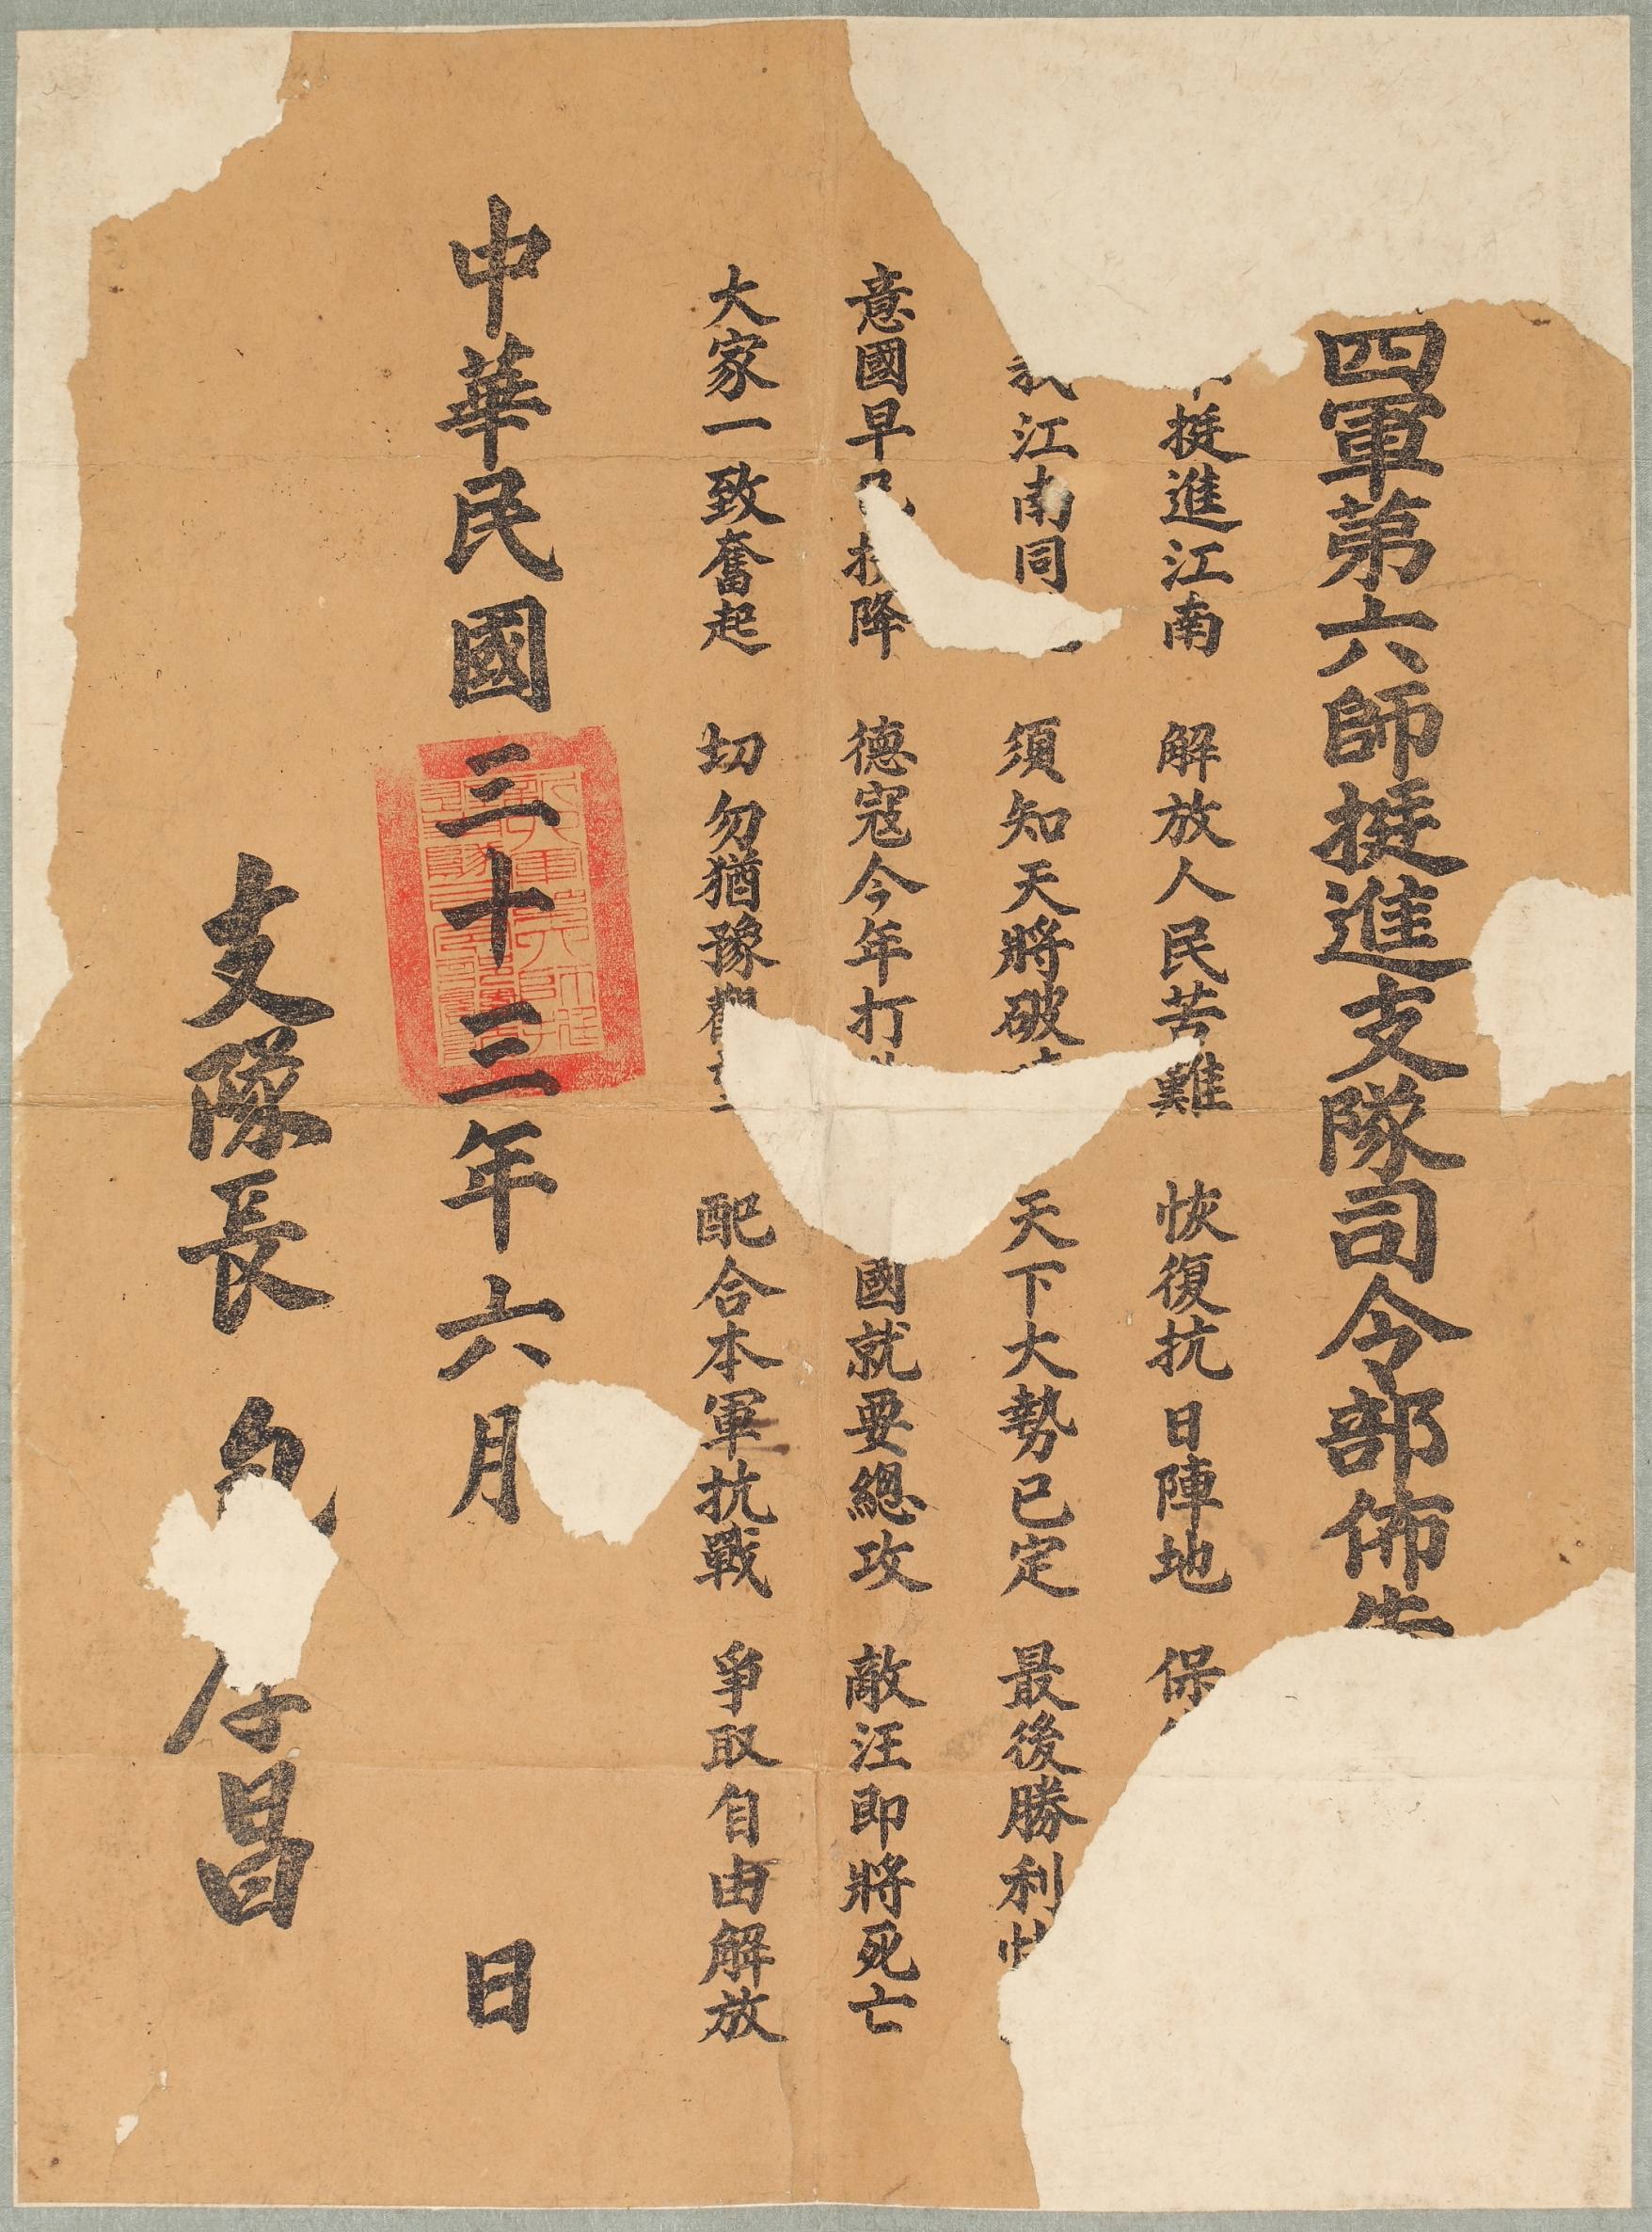 四軍第六師挺進支隊司令部佈告
挺進江南 解放人民苦難 恢復抗日陣地 保
我江南同 須知天將破 天下大勢已定 最後勝利快
意國早已投降 德寇今年打 國就要總攻 敵汪即將死亡
大家一致奮起 切勿猶豫觀望 配合本軍抗戰 爭取自由解放
中華民國三十三年六月 日
支隊長 包厚昌